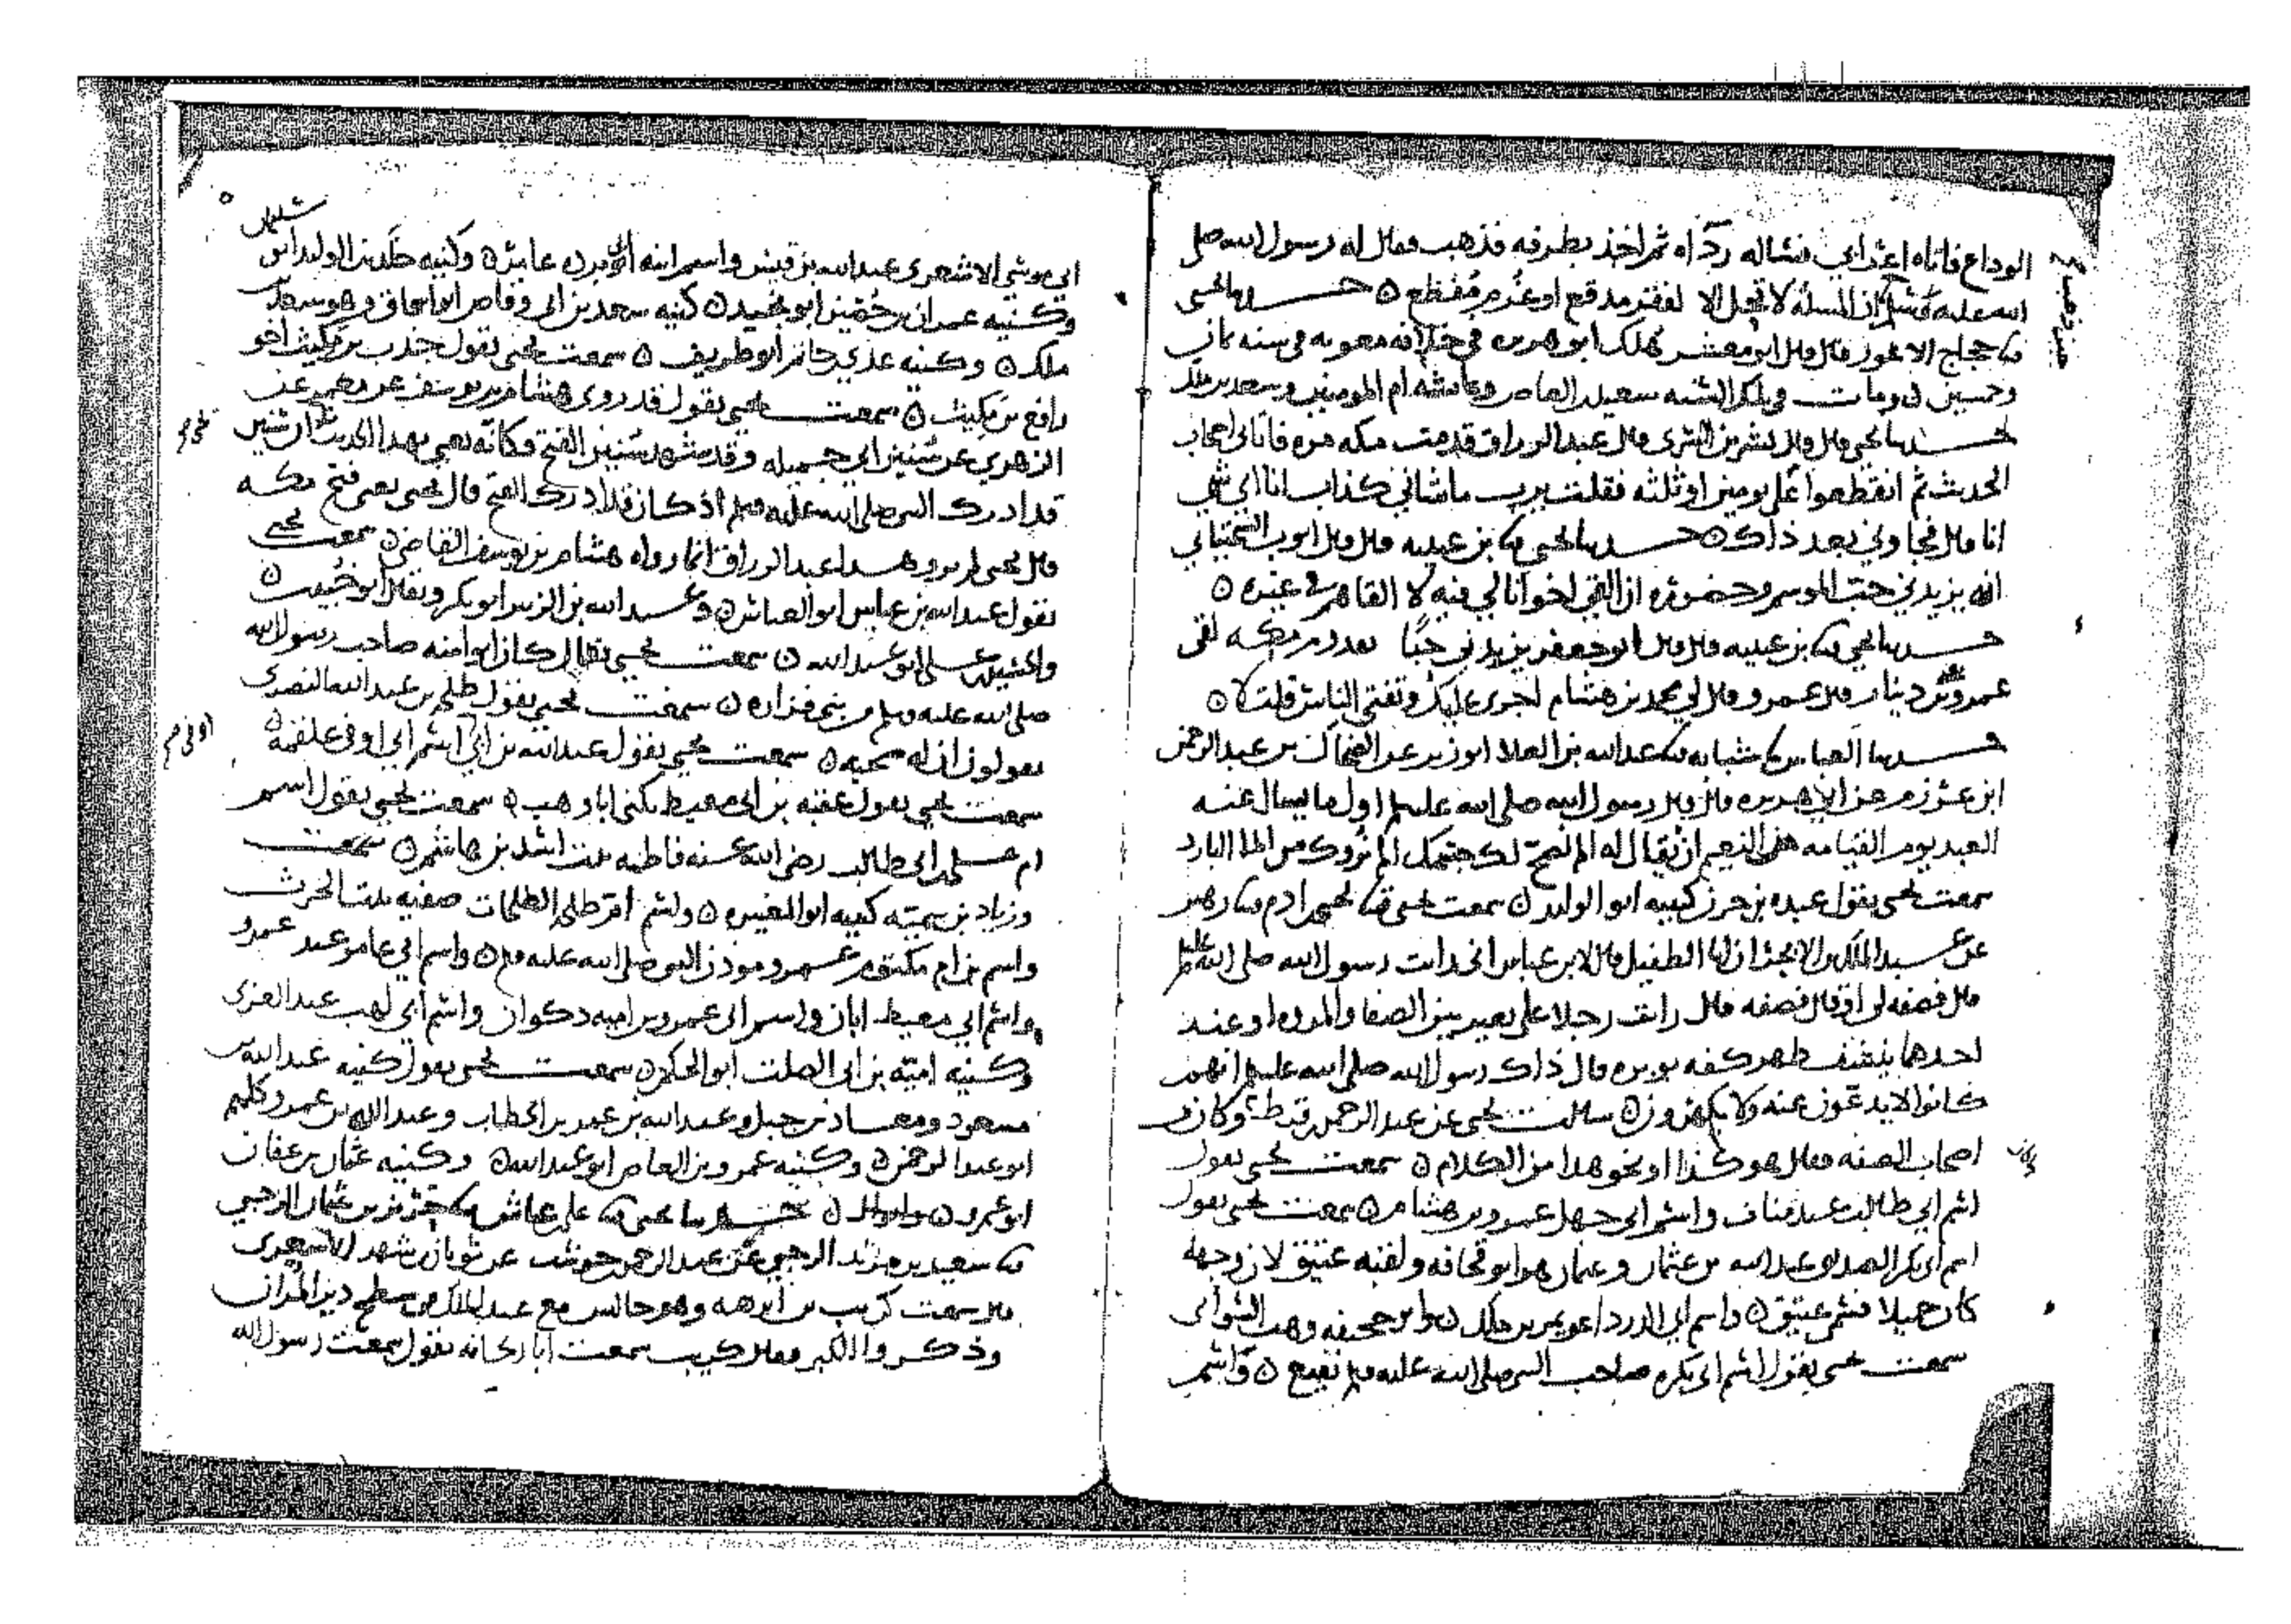 الوداع فاتاه اعرابي فساله رداه ثم اخذ بطرفه فذهب فقال له رسول الله صلى
الله عليه وسلم ان المسلة لا تحل الا لفقر مدقع او غرم مفظع ٥ حدثنا يحيى
نا حجاج الاعور قال قال ابو معشر هلك ابو هريرة في خلافه معويه في سنه ثمان
وخمسين ٥ ومات في تلك السنه سعيد بن العاص وعائشه ام المومنين وسعد بن ملك
حدثنا يحيى قال قال بشر بن السري قال عبد الرزاق قدمت مكه مره فاتاني اصحاب
الحديث ثم انقطعوا عني يومين او ثلثه فقلت يرب ما شاني كذاب انا اي شي
انا قال فجاوني بعد ذلك ٥ حدثنا يحيى نا بن عيينه قال قال ايوب السختياني
انه يزيدني حب الموسم وحضوره ان القى اخوانا لي فيه لا القاهم في غيره ٥
حدثنا يحيى نا بن عيينه قال قال ابو جعفر يزيدني حبا لقدوم مكه لقى
عمرو بن دينار قال عمرو قال لي محمد بن هشام اجرى عليك وتفتي الناس قلت لا ٥
حدثنا العباس نا شبابه نا عبد الله بن العلا ابو زبر عن الضحاك بن عبد الرحمن
ابن عرزم عن ابي هريره قال قال رسول الله صلى الله عليه وسلم اول ما يسال عنه
العبد يوم القيامه من النعيم ان يقال له الم نصح لك جسمك الم نروك من الما البارد
سمعت يحيى يقول عبده بن حزن كنيته ابو الوليد ٥ سمعت يحيى نا يحيى بن ادم نا زهير
عن عبد الملك بن الابجر ان ابا الطفيل قال لابن عباس اني رايت رسول الله صلى الله عليه وسلم
قال فصفه لي او قال فصفه قال رايت رجلا على بعير بين الصفا والمروه او عند
احدهما ظهر كفه قال ذاك رسول الله صلى الله عليه وسلم انهم
كانوا لا يدعون عنه ولا يكهرون ٥ سالت يحيى عن عبد الرحمن بن قرط وكان من
اصحاب الصفه فقال هو كذا او نحو هذا من الكلام ٥ سمعت يحيى يقول
اسم ابي طالب عبد مناف واسم ابي جهل عمرو بن هشام ٥ سمعت يحيى يقول
اسم ابي بكر الصديق عبد الله بن عثمان وعثمان هو ابو قحافه ولقبه عتيق لان وجهه
كان جميلا فسمي عتيق ٥ واسم ابي الدرداء عويمر بن ملك ٥ وابو جحيفه وهب السوائي
سمعت يحيى يقول اسم ابي بكره صاحب النبي صلى الله عليه وسلم نفيع ٥ واسم
ابي موسى الاشعري عبد الله بن قيس واسم ابنه ابي برده عامر ٥ وكنيه خلد بن الوليد ابو
سليمان
وكنيه عمران بن حصين ابو نجيد ٥ كنيه سعد بن ابي وقاص ابو اسحاق وهو سعد بن
ملك ٥ وكنيه عدي بن حاتم ابو طريف ٥ سمعت يحيى يقول جندب بن مكيث اخو
رافع بن مكيث ٥ سمعت يحيى يقول قد روى هشام بن يوسف عن معمر عن
الزهري عن سنين ابي جميله وقد شهد سنين الفتح وكانه يعني بهذا الحديث ان سنين
قد ادرك النبي صلى الله عليه وسلم اذ كان قد ادرك الفتح قال يحيى يعني فتح مكه
قال يحيى لم يرو هذا عبد الرزاق انما رواه هشام بن يوسف القاضي ٥ سمعت يحيى
يقول عبد الله بن عباس ابو العباس ٥ وعبد الله بن الزبير ابو بكر ويقال ابو خبيب ٥
والحسين بن علي ابو عبد الله ٥ سمعت يحيى يقال كان ابو امنه صاحب رسول الله
صلى الله عليه وسلم من بني فزاره ٥ سمعت يحيى يقول طلحه بن عبد الله النصري
يقولون ان له صحبه ٥ سمعت يحيى يقول عبد الله بن ابي اوفى اسم ابي اوفى علقمه ٥
سمعت يحيى يقول عقبه بن ابي معيط يكنى ابا وهب ٥ سمعت يحيى يقول اسم
ام علي بن ابي طالب رضي الله عنه فاطمه بنت اسد بن هاشم ٥ سمعت
وزياد بن سميه كنيه ابو المغيره ٥ واسم ام طلحه الطلحات صفيه بنت الحرث
واسم بن ام مكتوم عمرو موذن النبي صلى الله عليه وسلم ٥ واسم ابي عامر عبد عمرو
واسم ابي معيط ابان واسم ابي عمرو بن اميه ذكوان واسم ابي لهب عبد العزى
وكنيه اميه بن ابي الصلت ابو الحكم ٥ سمعت يحيى يقول كنيه عبد الله بن
مسعود ومعاذ بن جبل وعبد الله بن عمر بن الخطاب وعبد الله بن عمرو كلهم
ابو عبد الرحمن ٥ وكنيه عمرو بن العاص ابو عبد الله ٥ وكنيه عثمان بن عفان
ابو عمرو ٥ حدثنا يحيى نا علي بن عياش نا حريز بن عثمان الرحبي
نا سعيد بن مرثد الرحبي عن عبد الرحمن بن حوشب عن ثوبان بن شهر الاشعري
قال سمعت كريب بن ابرهه وهو جالس مع عبد الملك على سطح دير المران
وذكروا الكبر فقال كريب سمعت ابا ريحانه يقول سمعت رسول الله